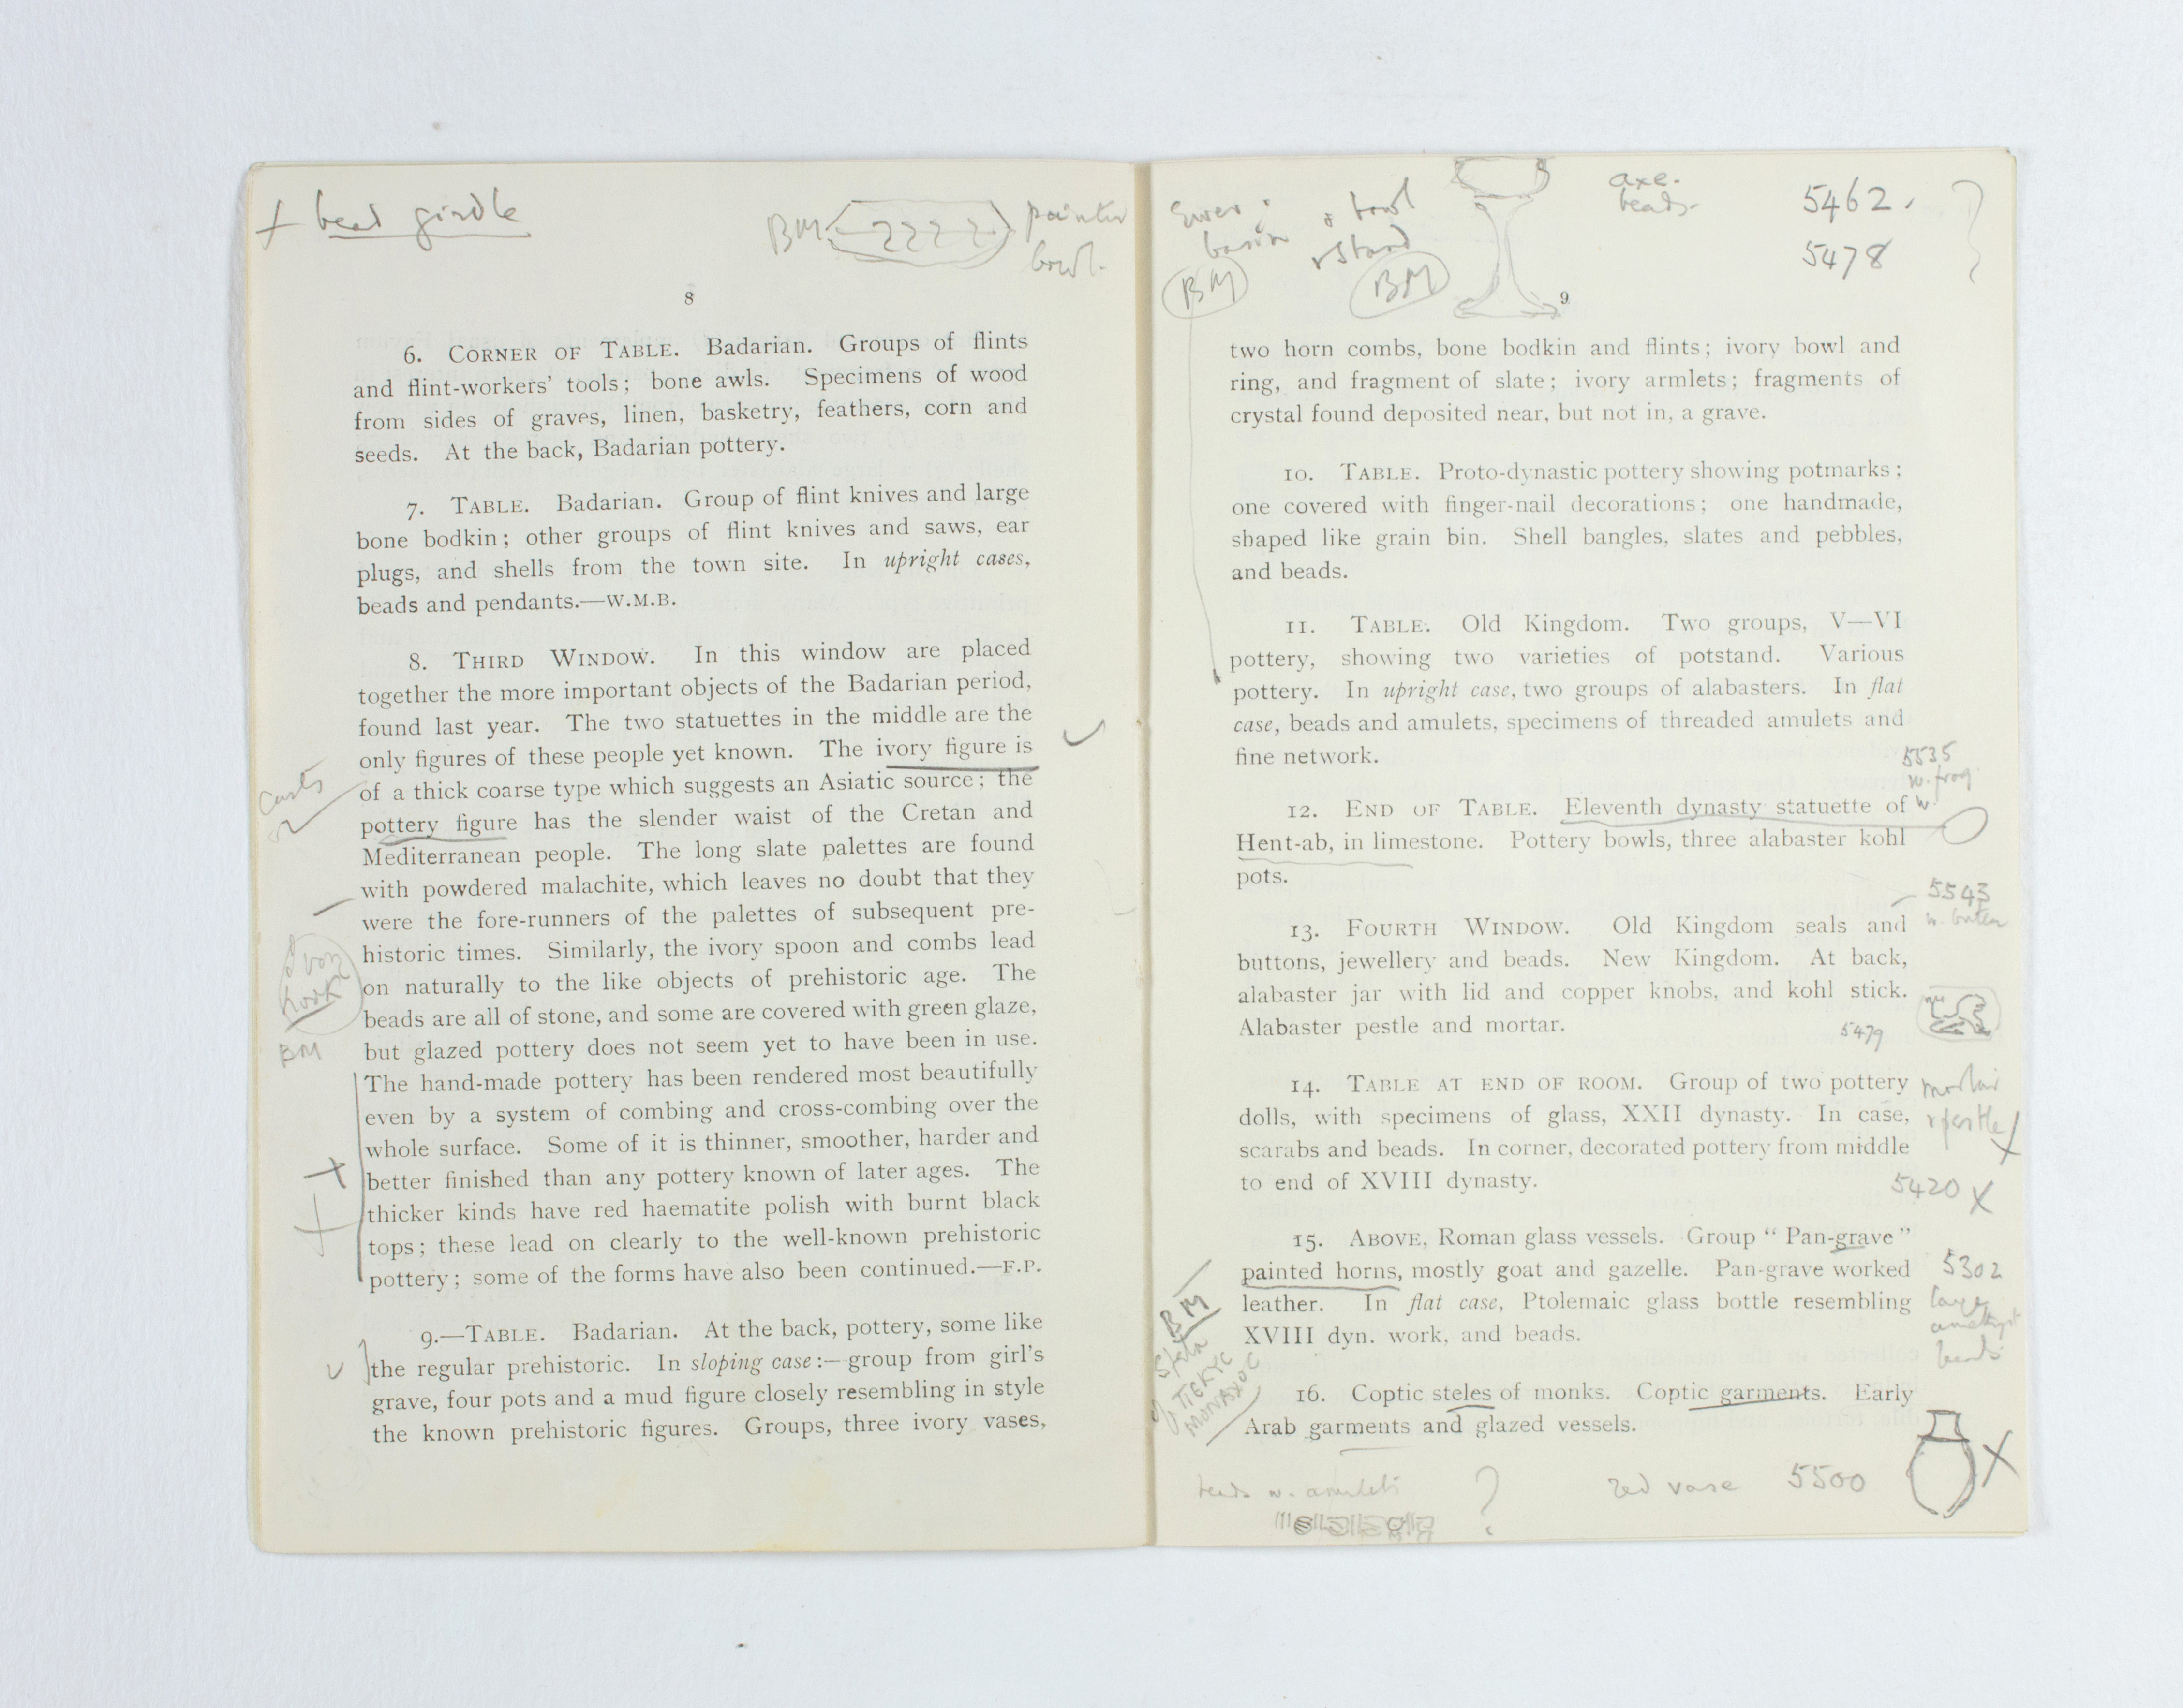 + bead girdle
BM 2222 painted
bowl.
8
6. CORNER OF TABLE. Badarian. Groups of flints
and flint-workers' tools; bone awls. Specimens of wood
from sides of graves, linen, basketry, feathers, corn and
seeds. At the back, Badarian pottery.
7. TABLE. Badarian. Group of flint knives and large
bone bodkin; other groups of flint knives and saws, ear
plugs, and shells from the town site. In upright cases,
beads and pendants.—W.M.B.
8. THIRD WINDOW. In this window are placed
together the more important objects of the Badarian period,
found last year. The two statuettes in the middle are the
only figures of these people yet known. The ivory figure is
of a thick coarse type which suggests an Asiatic source; the
pottery figure has the slender waist of the Cretan and
Mediterranean people. The long slate palettes are found
with powdered malachite, which leaves no doubt that they
were the fore-runners of the palettes of subsequent pre-
historic times. Similarly, the ivory spoon and combs lead
on naturally to the like objects of prehistoric age. The
beads are all of stone, and some are covered with green glaze,
but glazed pottery does not seem yet to have been in use.
The hand-made pottery has been rendered most beautifully
even by a system of combing and cross-combing over the
whole surface. Some of it is thinner, smoother, harder and
better finished than any pottery known of later ages. The
thicker kinds have red haematite polish with burnt black
tops; these lead on clearly to the well-known prehistoric
pottery; some of the forms have also been continued.—F.P.
9.—TABLE. Badarian. At the back, pottery, some like
the regular prehistoric. In sloping case:—group from girl's
grave, four pots and a mud figure closely resembling in style
the known prehistoric figures. Groups, three ivory vases,
casts
BM
Ewer
basin
BM
bowl
& stand
BM
axe.
beads.
5462.
5478
9
two horn combs, bone bodkin and flints; ivory bowl and
ring, and fragment of slate; ivory armlets; fragments of
crystal found deposited near, but not in, a grave.
10. TABLE. Proto-dynastic pottery showing potmarks;
one covered with finger-nail decorations; one handmade,
shaped like grain bin. Shell bangles, slates and pebbles,
and beads.
11. TABLE. Old Kingdom. Two groups, V—VI
pottery, showing two varieties of potstand. Various
pottery. In upright case, two groups of alabasters. In flat
case, beads and amulets, specimens of threaded amulets and
fine network.
5535
w. frog
12. END OF TABLE. Eleventh dynasty statuette of
Hent-ab, in limestone. Pottery bowls, three alabaster kohl
pots.
5543
13. FOURTH WINDOW. Old Kingdom seals and
buttons, jewellery and beads. New Kingdom. At back,
alabaster jar with lid and copper knobs, and kohl stick.
Alabaster pestle and mortar.
5479
14. TABLE AT END OF ROOM. Group of two pottery
dolls, with specimens of glass, XXII dynasty. In case,
scarabs and beads. In corner, decorated pottery from middle
to end of XVIII dynasty.
mortar
& pestle X
5420 X
15. ABOVE, Roman glass vessels. Group "Pan-grave"
painted horns, mostly goat and gazelle. Pan-grave worked
leather. In flat case, Ptolemaic glass bottle resembling
XVIII dyn. work, and beads.
5302
large
amethyst
beads
16. Coptic steles of monks. Coptic garments. Early
Arab garments and glazed vessels.
BM
Stela
beads w. amulets ?
red vase 5500
X